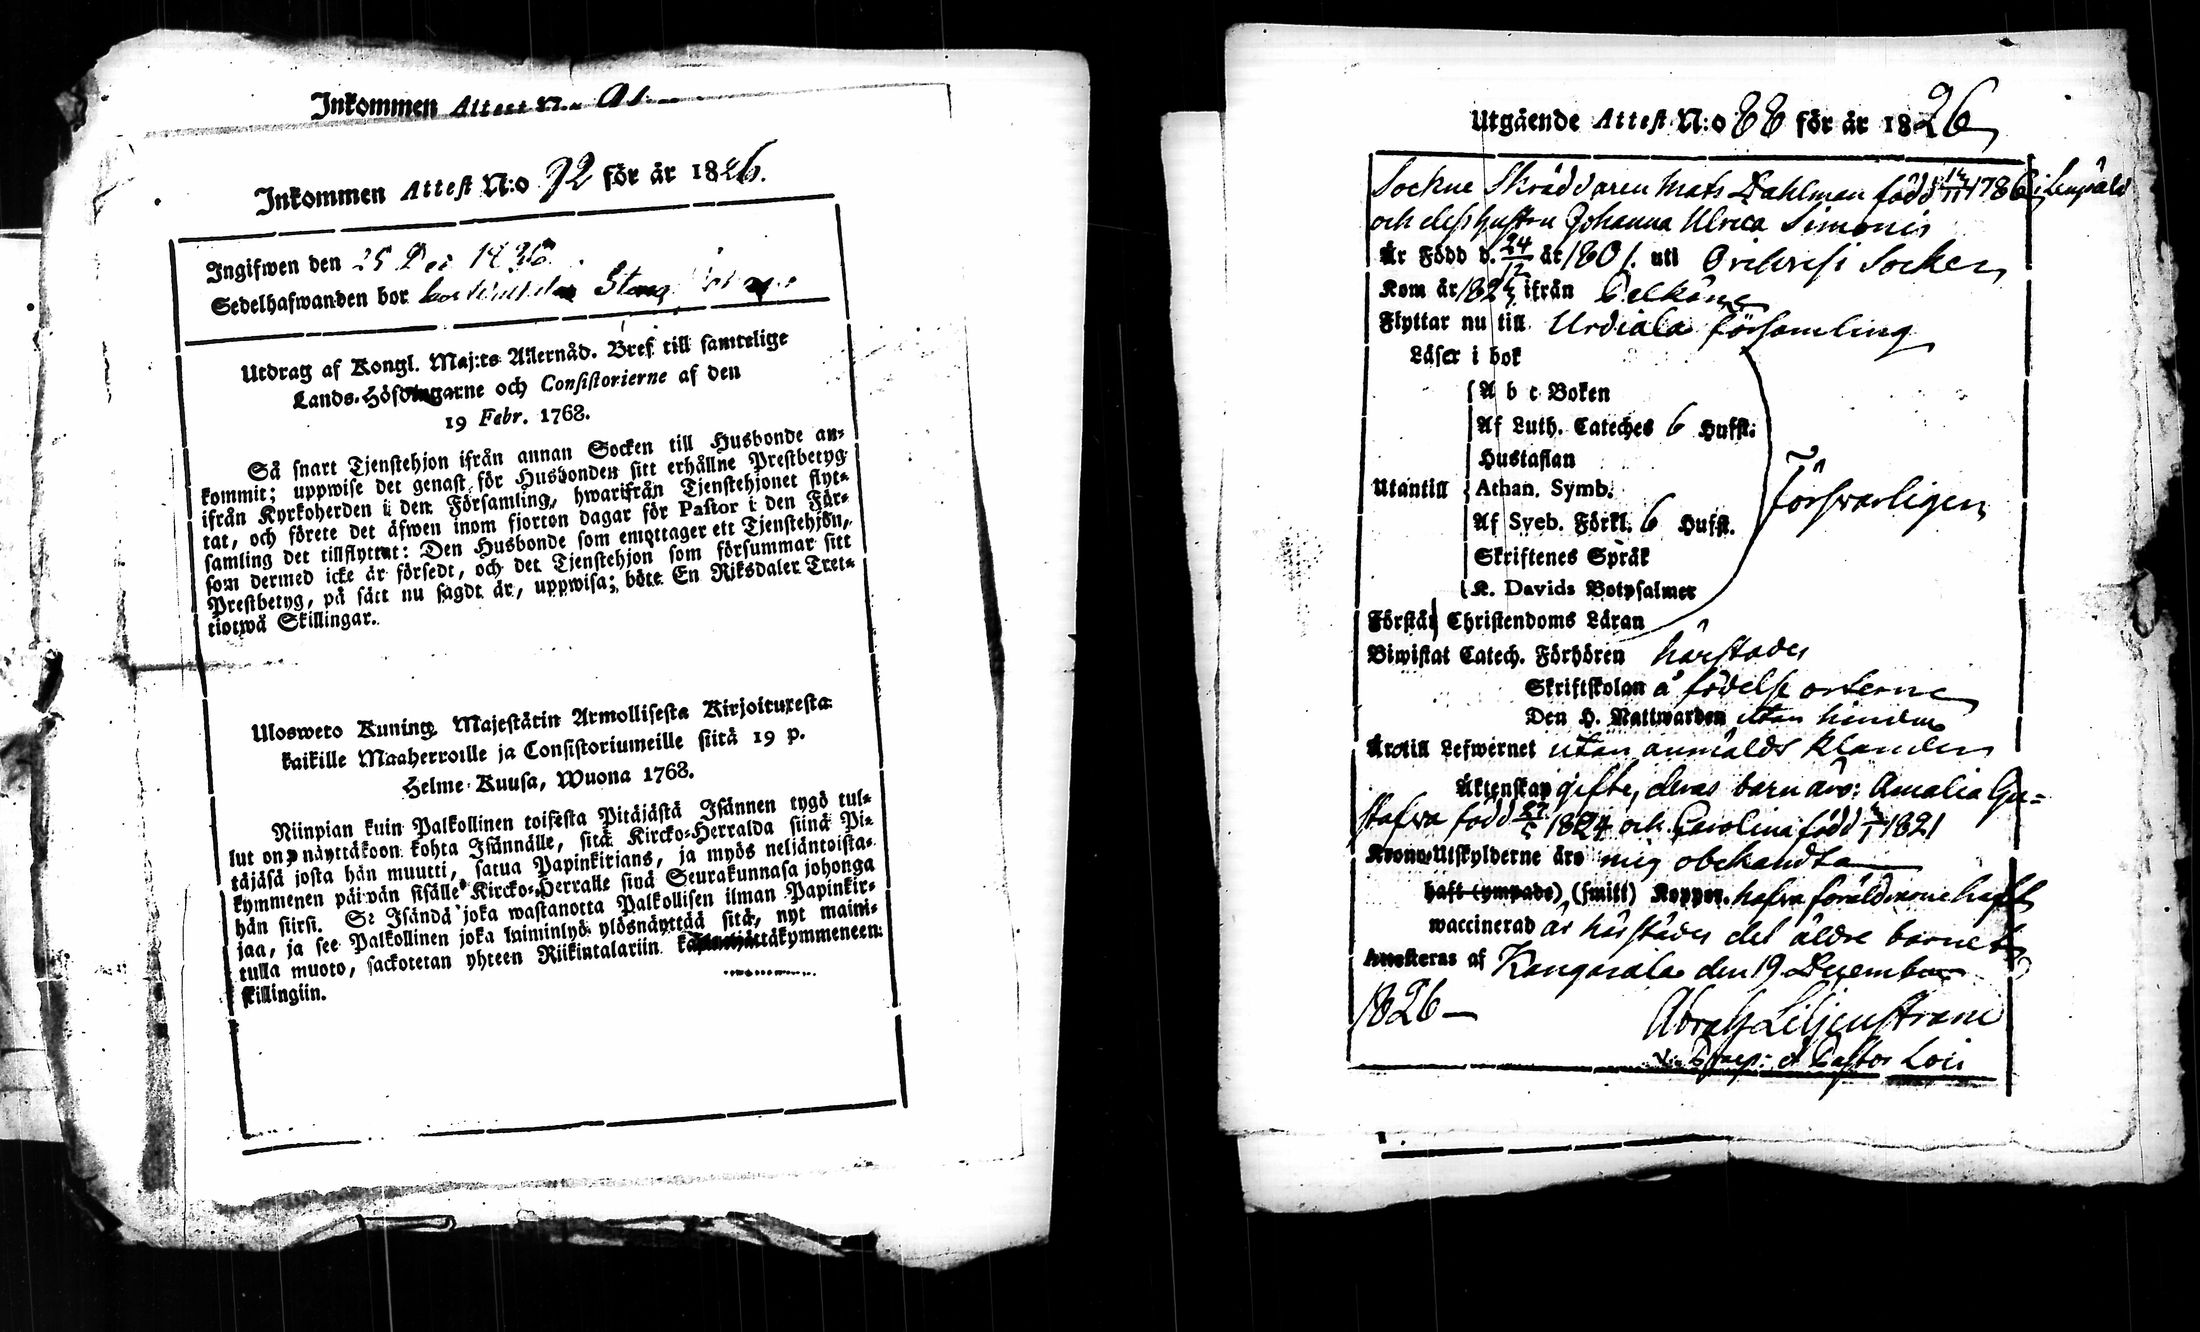 Inkommen Attest N:o
Inkommen Attest N:o 92 för år 1826.
Ingifwen den 25 Dec 1826
Sedelhafwanden bor
Utdrag af Kongl. Maj:ts Allernåd. Bref till samtelige
Lands-Höfdingarne och Consistorierne af den
19 Febr. 1768.
Så snart Tjenstehjon ifrån annan Socken till Husbonde an-
kommit; uppwise det genast för Husbonden sitt erhållne Prestbetyg
ifrån Kyrkoherden i den Församling, hwarifrån Tjenstehjonet flyt-
tat, och förete det äfwen inom fjorton dagar för Pastor i den För-
samling det tillflyttat: Den Husbonde som emottager ett Tjenstehjon,
som dermed icke är försedt, och det Tjenstehjon som försummar sitt
Prestbetyg, på sätt nu sagdt är, uppwisa; böte En Riksdaler Tret-
tiotwå Skillingar.
Ulosweto Kuning. Majestätin Armollisesta Kirjoituxesta
kaikille Maaherroille ja Consistoriumeille siitä 19 p.
Helme-Kuusa, Wuona 1768.
Niinpian kuin Palkollinen toisesta Pitäjästä Isännen tygö tul-
lut on, näyttäkoon kohta Isännälle, sitä Kircko-Herralda siinä Pi-
täjäsä josta hän muutti, satua Papinkirjans, ja myös neljäntoista-
kymmenen päiwän sisälle Kircko-Herralle sinä Seurakunnasa johonga
hän siirsi. Se Isändä joka wastanotta Palkollisen ilman Papinkir-
jaa, ja see Palkollinen joka laiminlyö ylösnäyttää sitä, nyt maini-
tulla muoto, sackotetan yhteen Riikintalariin
skillingiin.
Utgående Attest N:o 88 för år 1826
Sockne Skräddaren Mats Dahlman född 1786 i Lempälä
och dess hustru Johanna Ulrica Simonis
Är Född d. 24/12 år 1801. uti Orihvesi Socken
Kom år 182 ifrån Pelkäne
Flyttar nu till Urdiala församling
Läser i bok
A b c Boken
Af Luth. Cateches 6 Hufst:
Hustaflan
Utantill Athan. Symb.
Försvarligen
Af Sveb. Förkl. 6 Hufst.
Skriftenes Språk
K. Davids Botpsalmer
Förstår Christendoms Läran
Biwistat Catech. Förhören härstädes
Skriftskolan å födelse orterne
Den H. Nattwarden utan hinder
Är till Lefwernet utan anmäldt klander
Äktenskap gifte, deras barn äro: Amalia Gu=
stafva född 27/5 1824 och Carolina född 1821
Krono Utskylderne äro mig obekandta
haft (ympade) (smitt) Koppor. hafva föräldrarne haft
waccinerad är härstädes det äldre barnet
Attesteras af Kangasala den 19 December
1826
Abrah Liljenstrand
v: Præp: & Pastor Loci